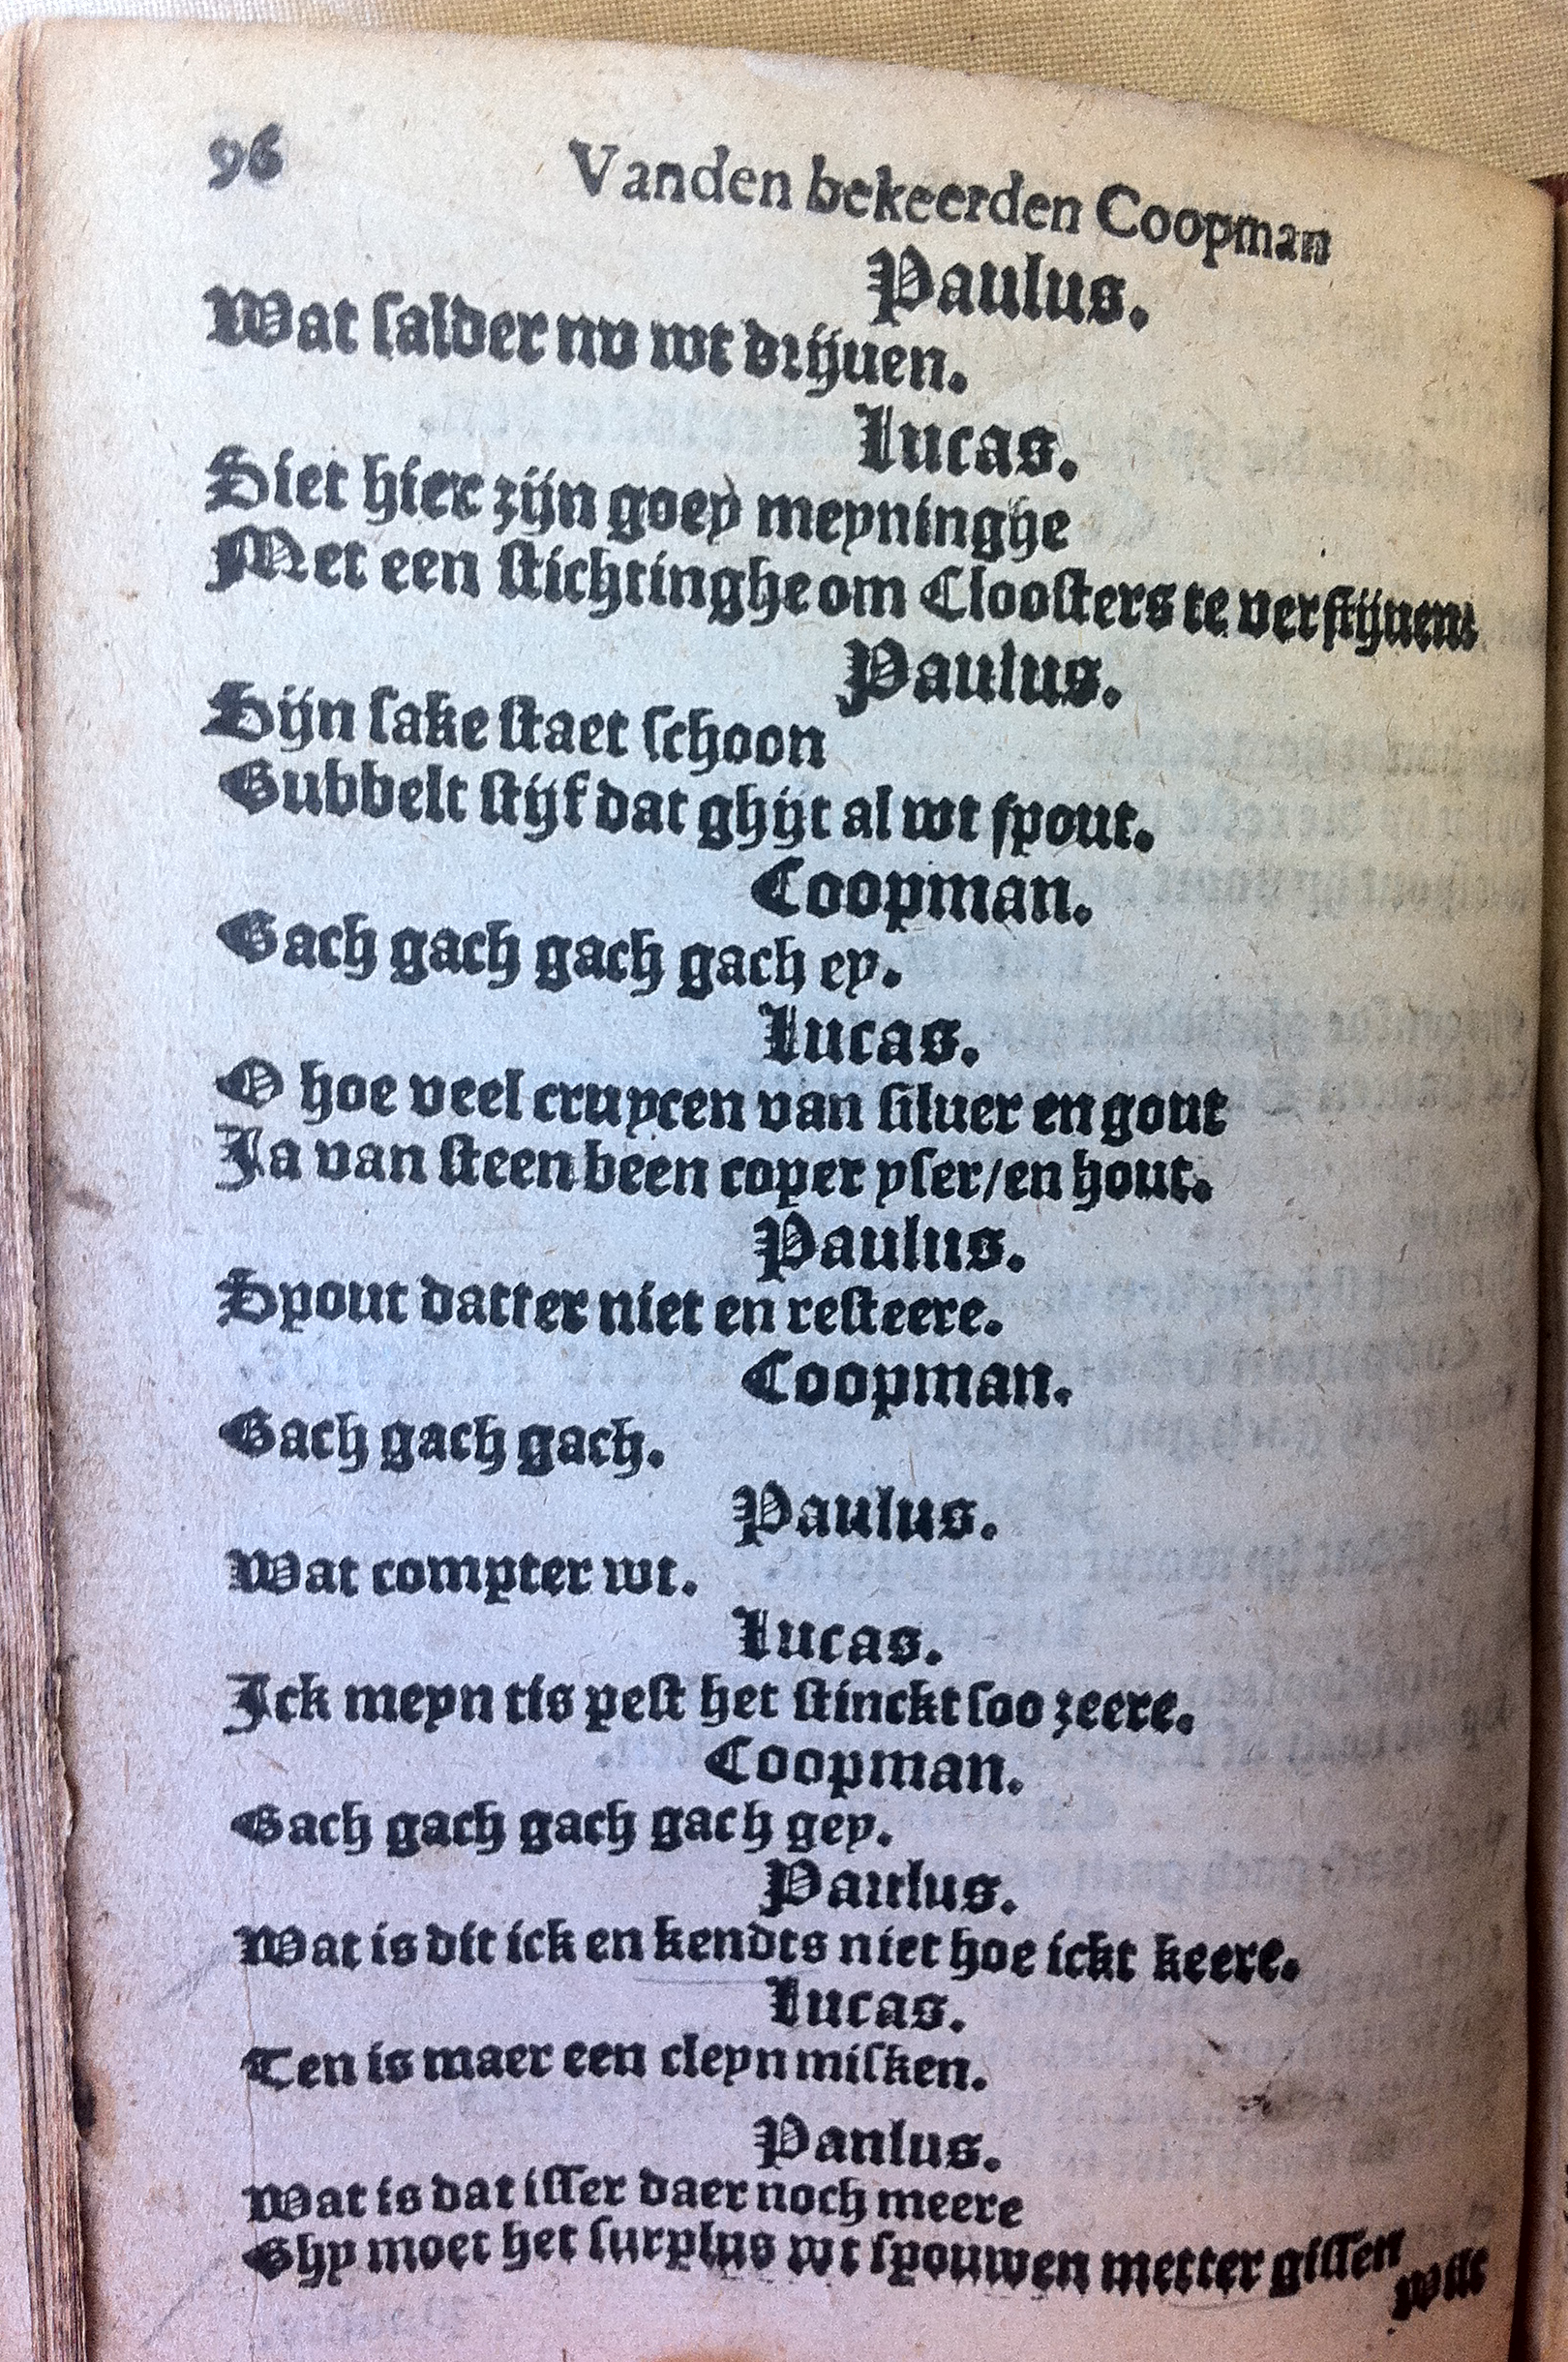 96
Vanden bekeerden Coopman
Paulus.
Wat ſalder nv wt drijuen.
Lucas.
Siet hier zijn goey meyninghe
Met een ſtichtinghe om Clooſters te verſtijuen.
Paulus.
Sijn ſake ſtaet ſchoon
Gubbelt ſtijf dat ghijt al wt ſpout.
Coopman.
Gach gach gach gach ey.
Lucas.
O hoe veel cruycen van ſiluer en gout
Ja van ſteen been coper yſer/en hout.
Paulus.
Spout datter niet en reſteere.
Coopman.
Gach gach gach.
Paulus.
Wat compter wt.
Lucas.
Ick meyn tis peſt het ſtinckt ſoo zeere.
Coopman.
Gach gach gach gach gey.
Paulus.
Wat is dit ick en kendts niet hoe ickt keere.
Lucas.
Ten is maer een cleyn miſken.
Panlus.
Wat is dat iſſer daer noch meere
Ghy moet het ſurplus wt ſpouwen metter giſſen
Wilt